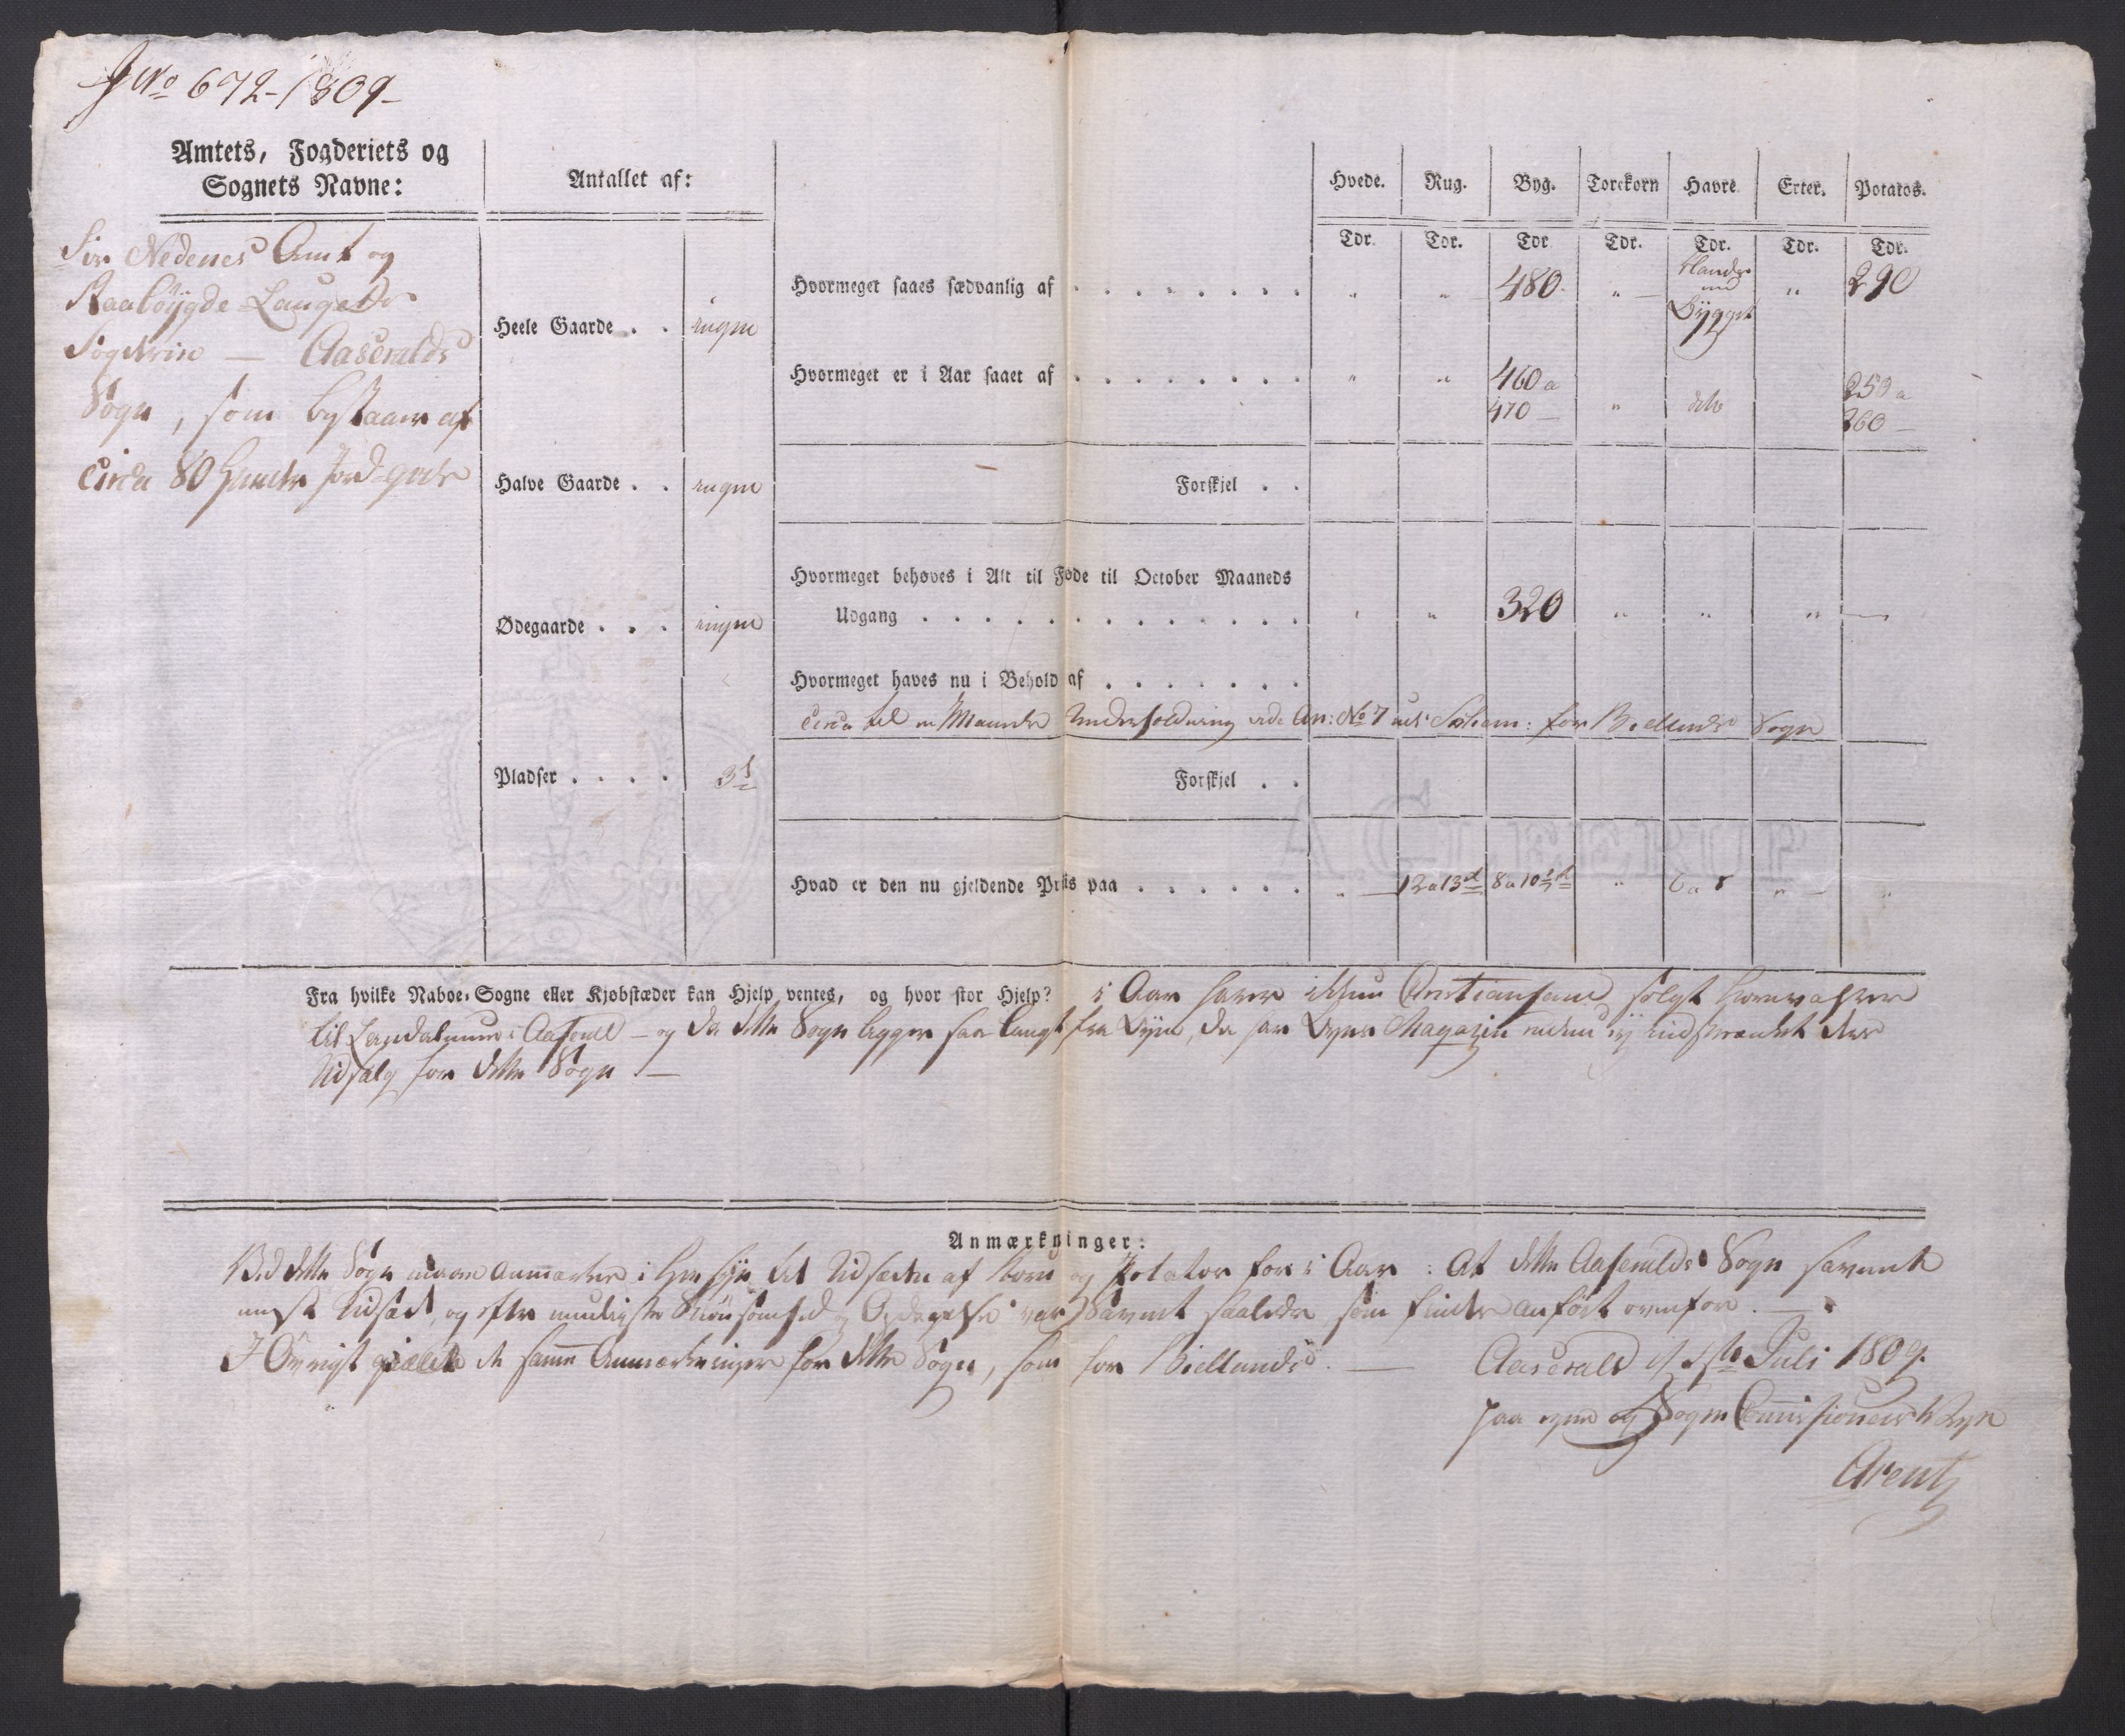 J No 672-1809-
Amtets, Fogderiets og
Sognets Navne:
Antallet af:
Hvede. Rug. Byg. Torekorn Havre. Erter. Potatos.
Tdr. Tdr. Tdr Tdr. Tdr. Tdr. Tdr.
Nedenes Amt og
Raabøygde Laugets
Fogderie — Aaseralds
Sogn, som bestaaer af
circa 80 Huuder Jord-gods
Heele Gaarde . . ingen
Halve Gaarde . . ingen
Ødegaarde . . . ingen
Pladser . . . .
Hvormeget saaes sædvanlig af . . . . . . . . " " 480 " Blandet med Bygget " 290
Hvormeget er i Aar saaet af . . . . . . . . " " 460 a 470 — " dito 250 a 260 —
Forskjel . .
Hvormeget behøves i Alt til Føde til October Maaneds
Udgang . . . . . . . . . . . . . " " 320 " " " —
Hvormeget haves nu i Behold af . . . . . . .
circa til en Maaneds Underholdning vide An: No 7 ved Schem: for Biellands Sogn
Forskjel . .
Hvad er den nu gjeldende Priis paa . . . . . . " 12 a 13 rd 8 a 10 rd " 6 a 8 " "
Fra hvilke Naboe-Sogne eller Kjøbstæder kan Hjelp ventes, og hvor stor Hjelp? i Aar haver ikkun Christiansand solgt Kornvahrer
til Landalmuen i Aaserald — og da dette Sogn ligger saa langt fra Byen, da har Byens Magazin indskrænket der
Udsalg for dette Sogn. —
Anmærkninger:
Ved dette Sogn maae anmærkes i Hensyn til Udsæden af Korn og Potatos for i Aar: At dette Aaseralds Sogn havende
mest Udsæd, og efter mueligste Skiønsomhed og Opdagelse var havent saaledes som findes anført ovenfor. —
I Øvrigt gielder de samme Anmærkninger for dette Sogn, som for Biellands. —
Aaserald d. Juli 1809.
paa egne og Sogne Commissionens Vegne
Arentz